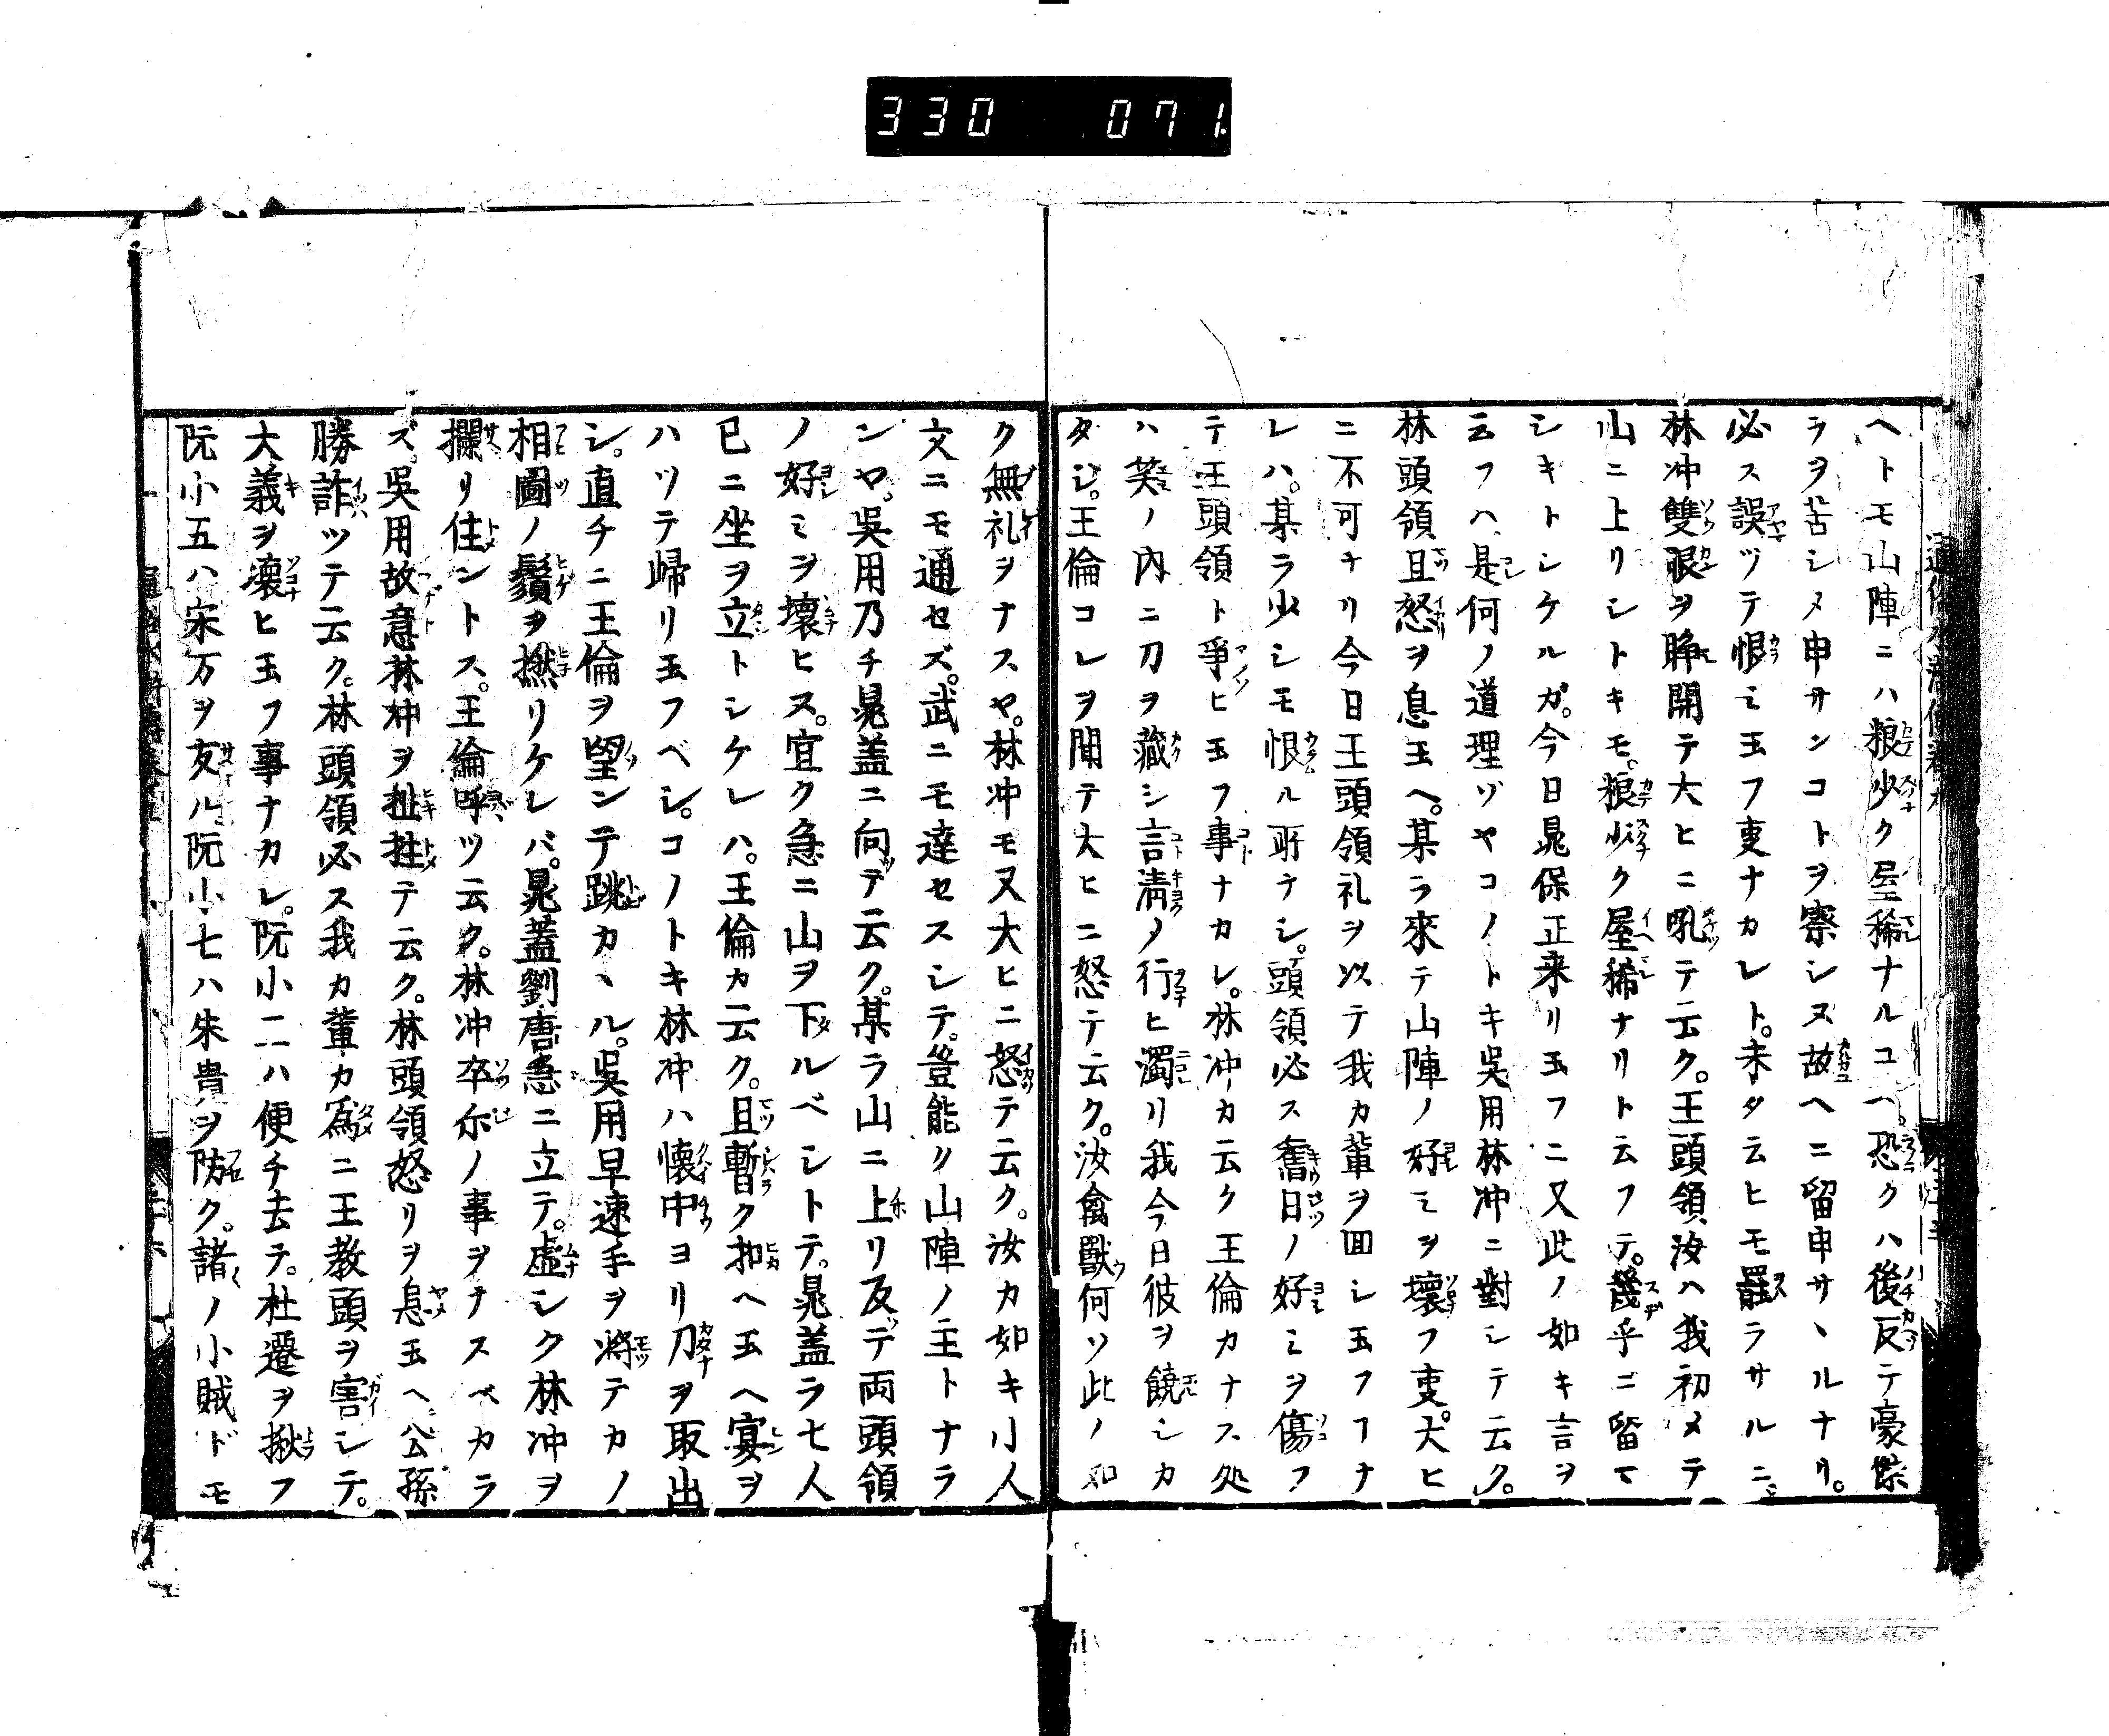 330 071
ヘトモ山陣ニハ粮少ク屋稀ナルコハ。恐クハ後反テ豪傑
ラヲ苦シメ申サンコトヲ察シヌ故ヘニ留申サヽルナリ。
必ス誤ツテ恨ミ玉フ叓ナカレト。未タ云ヒモ罷ラサルニ。
林冲雙眼ヲ睁開テ大ヒニ吼テ云ク。王頭領汝ハ我初メテ
山ニ上リシトキモ。粮少ク屋稀ナリト云フテ。幾乎ニ留マ
シキトシケルガ。今日晁保正来リ玉フニ又此ノ如キ言ヲ
云フハ是何ノ道理ゾヤコノトキ吳用林冲ニ對シテ云ク。
林頭領且怒ヲ息玉ヘ。某ラ來テ山陣ノ好ミヲ壞フ叓。大ヒ
ニ不可ナリ今日王頭領礼ヲ以テ我カ輩ヲ回シ玉フフナ
レハ。某ラ少シモ恨ル所ナシ。頭領必ス舊日ノ好ミヲ傷フ
テ王頭領ト爭ヒ玉フ事ナカレ。林冲カ云ク王倫カナス処
ハ笑ノ内ニ刀ヲ藏シ言清ノ行ヒ濁リ我今日彼ヲ饒シカ
タシ。王倫コレヲ聞テ大ヒニ怒テ云ク。汝禽獸何ソ此ノ如
ク無礼ヲナスヤ。林冲モ又大ヒニ怒テ云ク。汝カ如キ小人
文ニモ通セズ。武ニモ達セスシテ。豈能ク山陣ノ主トナラ
ンヤ。吳用乃チ晁盖ニ向テ云ク。某ラ山ニ上リ反テ両頭領
ノ好ミヲ壞ヒス。宜ク急ニ山ヲ下ルベシトテ。晁盖ラ七人
已ニ坐ヲ立トシケレハ。王倫カ云ク。且暫ク扣ヘ玉ヘ宴ヲ
ハツテ歸リ玉フベシ。コノトキ林冲ハ懐中ヨリ刀ヲ取出
シ。直チニ王倫ヲ望ンテ跳カヽル。吳用早速手ヲ將テカノ
相圖ノ鬚ヲ撚リケレバ。晁蓋劉唐急ニ立テ。虚シク林冲ヲ
攔リ住ントス。王倫呼ツ云ク。林冲卒尓ノ事ヲナスベカラ
ズ。吳用故意林冲ヲ扯拄テ云ク。林頭領怒リヲ息玉ヘ。公孫
勝詐ツテ云ク。林頭領必ス我カ輩カ為ニ王教頭ヲ害シテ。
大義ヲ壞ヒ玉フ事ナカレ。阮小二ハ便チ去テ。杜遷ヲ揪フ
阮小五ハ宋万ヲ友ル阮小七ハ朱貴ヲ防ク。諸ノ小賊ドモ